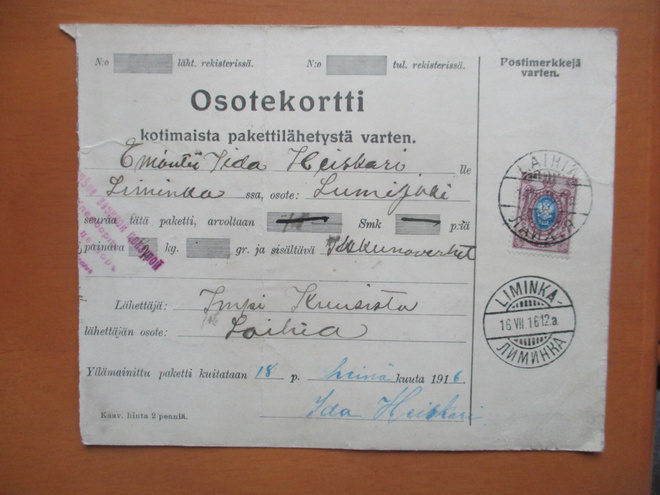 N:o läht. rekisterissä. N:o tul. rekisterissä.
Postimerkkejä
varten.
Osotekortti
kotimaista pakettilähetystä varten.
Emäntä Iida Heiskari lle
Liminka ssa, osote: Lumijoki
seuraa tätä paketti, arvoltaan Smk p:tä
painava kg. gr. ja sisältävä Ikkunaverhot
Lähettäjä: Impi Kuusisto
lähettäjän osote: Laihia
Yllämainittu paketti kuitataan 18 p. heinä kuuta 1916
Ida Heiskari
Kaav. hinta 2 penniä.
LAIHIA
LIMINKA-
16 VII 16 12 a
ЛИМИНКА